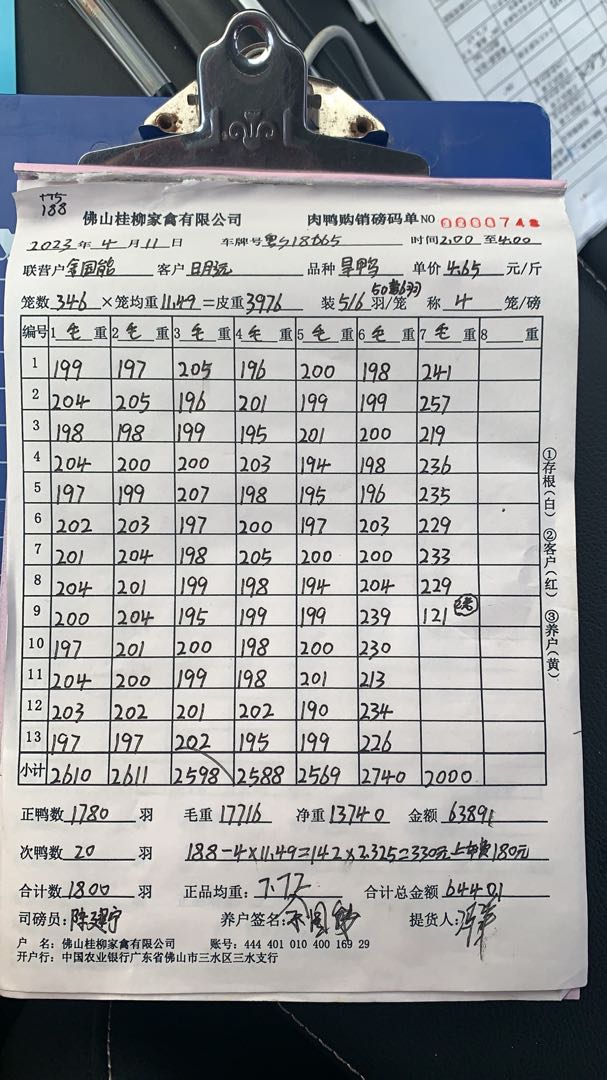 188
佛山桂柳家禽有限公司 肉鸭购销磅码单 NO 000074
2023 年 4 月 11 日 车牌号 粤S18D65 时间 2:00 至 4:00
联营户 国能 客户 日月远 品种 旱鸭 单价 4.65 元/斤
50套6羽
笼数 346 ×笼均重 11.49 =皮重 3976 装 5/6 羽/笼 称 4 笼/磅
编号 1 毛 重 2 毛 重 3 毛 重 4 毛 重 5 毛 重 6 毛 重 7 毛 重 8 重
1 199 197 205 196 200 198 241
2 204 205 196 201 199 199 257
3 198 198 199 195 201 200 219
4 204 200 200 203 194 198 236
5 197 199 207 198 195 196 235
6 202 203 197 200 197 203 229
7 201 204 198 205 200 200 233
8 204 201 199 198 194 204 229
9 200 204 195 199 199 239 121 2笼
10 197 201 200 198 200 230
11 204 200 199 198 201 213
12 203 202 201 202 190 234
13 197 197 202 195 199 226
小计 2610 2611 2598 2588 2569 2740 2000
正鸭数 1780 羽 毛重 17716 净重 13740 金额 63891
次鸭数 20 羽 188-4×11.49=142×2.325=330元上车费180元
合计数 1800 羽 正品均重: 7.72 合计总金额 64401
司磅员: 陈建宁 养户签名: 提货人:
户 名: 佛山桂柳家禽有限公司 账号: 444 401 010 400 169 29
开户行: 中国农业银行广东省佛山市三水区三水支行
①存根(白) ②客户(红) ③养户(黄)